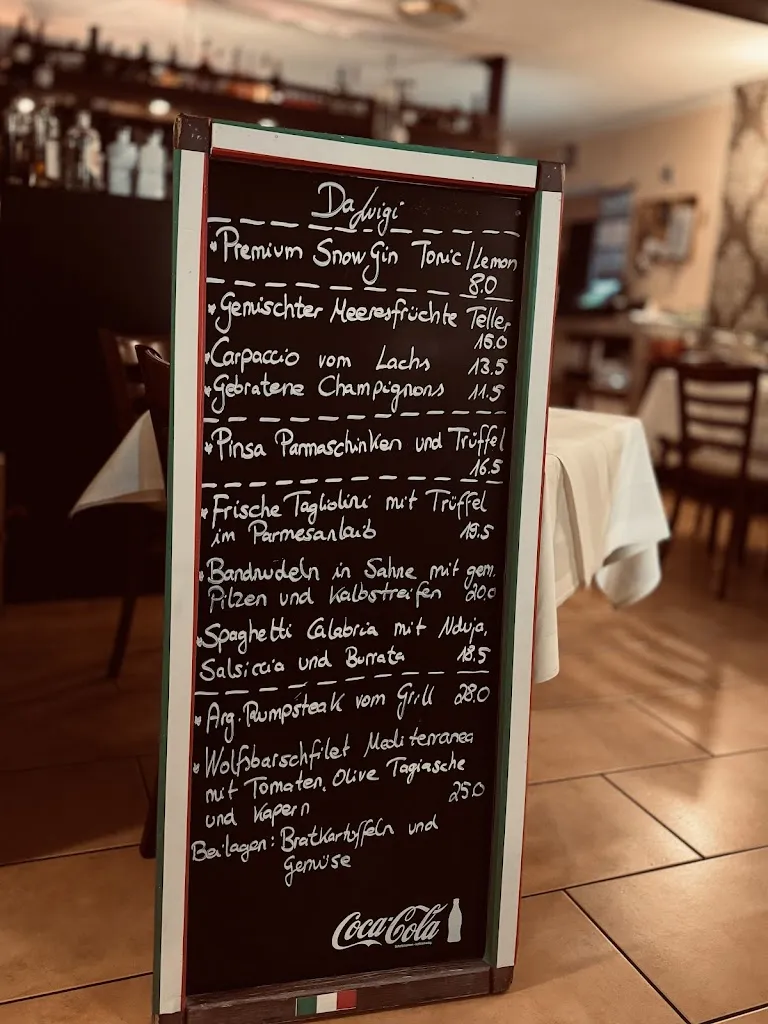 Da Luigi
*Premium Snow Gin Tonic/Lemon
8.0
*Gemischter Meeresfrüchte Teller
16.0
*Carpaccio vom Lachs 13.5
*Gebratene Champignons 11.5
*Pinsa Parmaschinken und Trüffel
16.5
*Frische Tagliolini mit Trüffel
im Parmesanlaib 19.5
*Bandnudeln in Sahne mit gem.
Pilzen und Kalbstreifen 20.0
*Spaghetti Calabria mit Nduja,
Salsiccia und Burrata 18.5
*Arg. Rumpsteak vom Grill 28.0
*Wolfsbarschfilet Mediterranea
mit Tomaten, Olive Tagiasche
und Kapern 25.0
Beilagen: Bratkartoffeln und
Gemüse
Coca-Cola